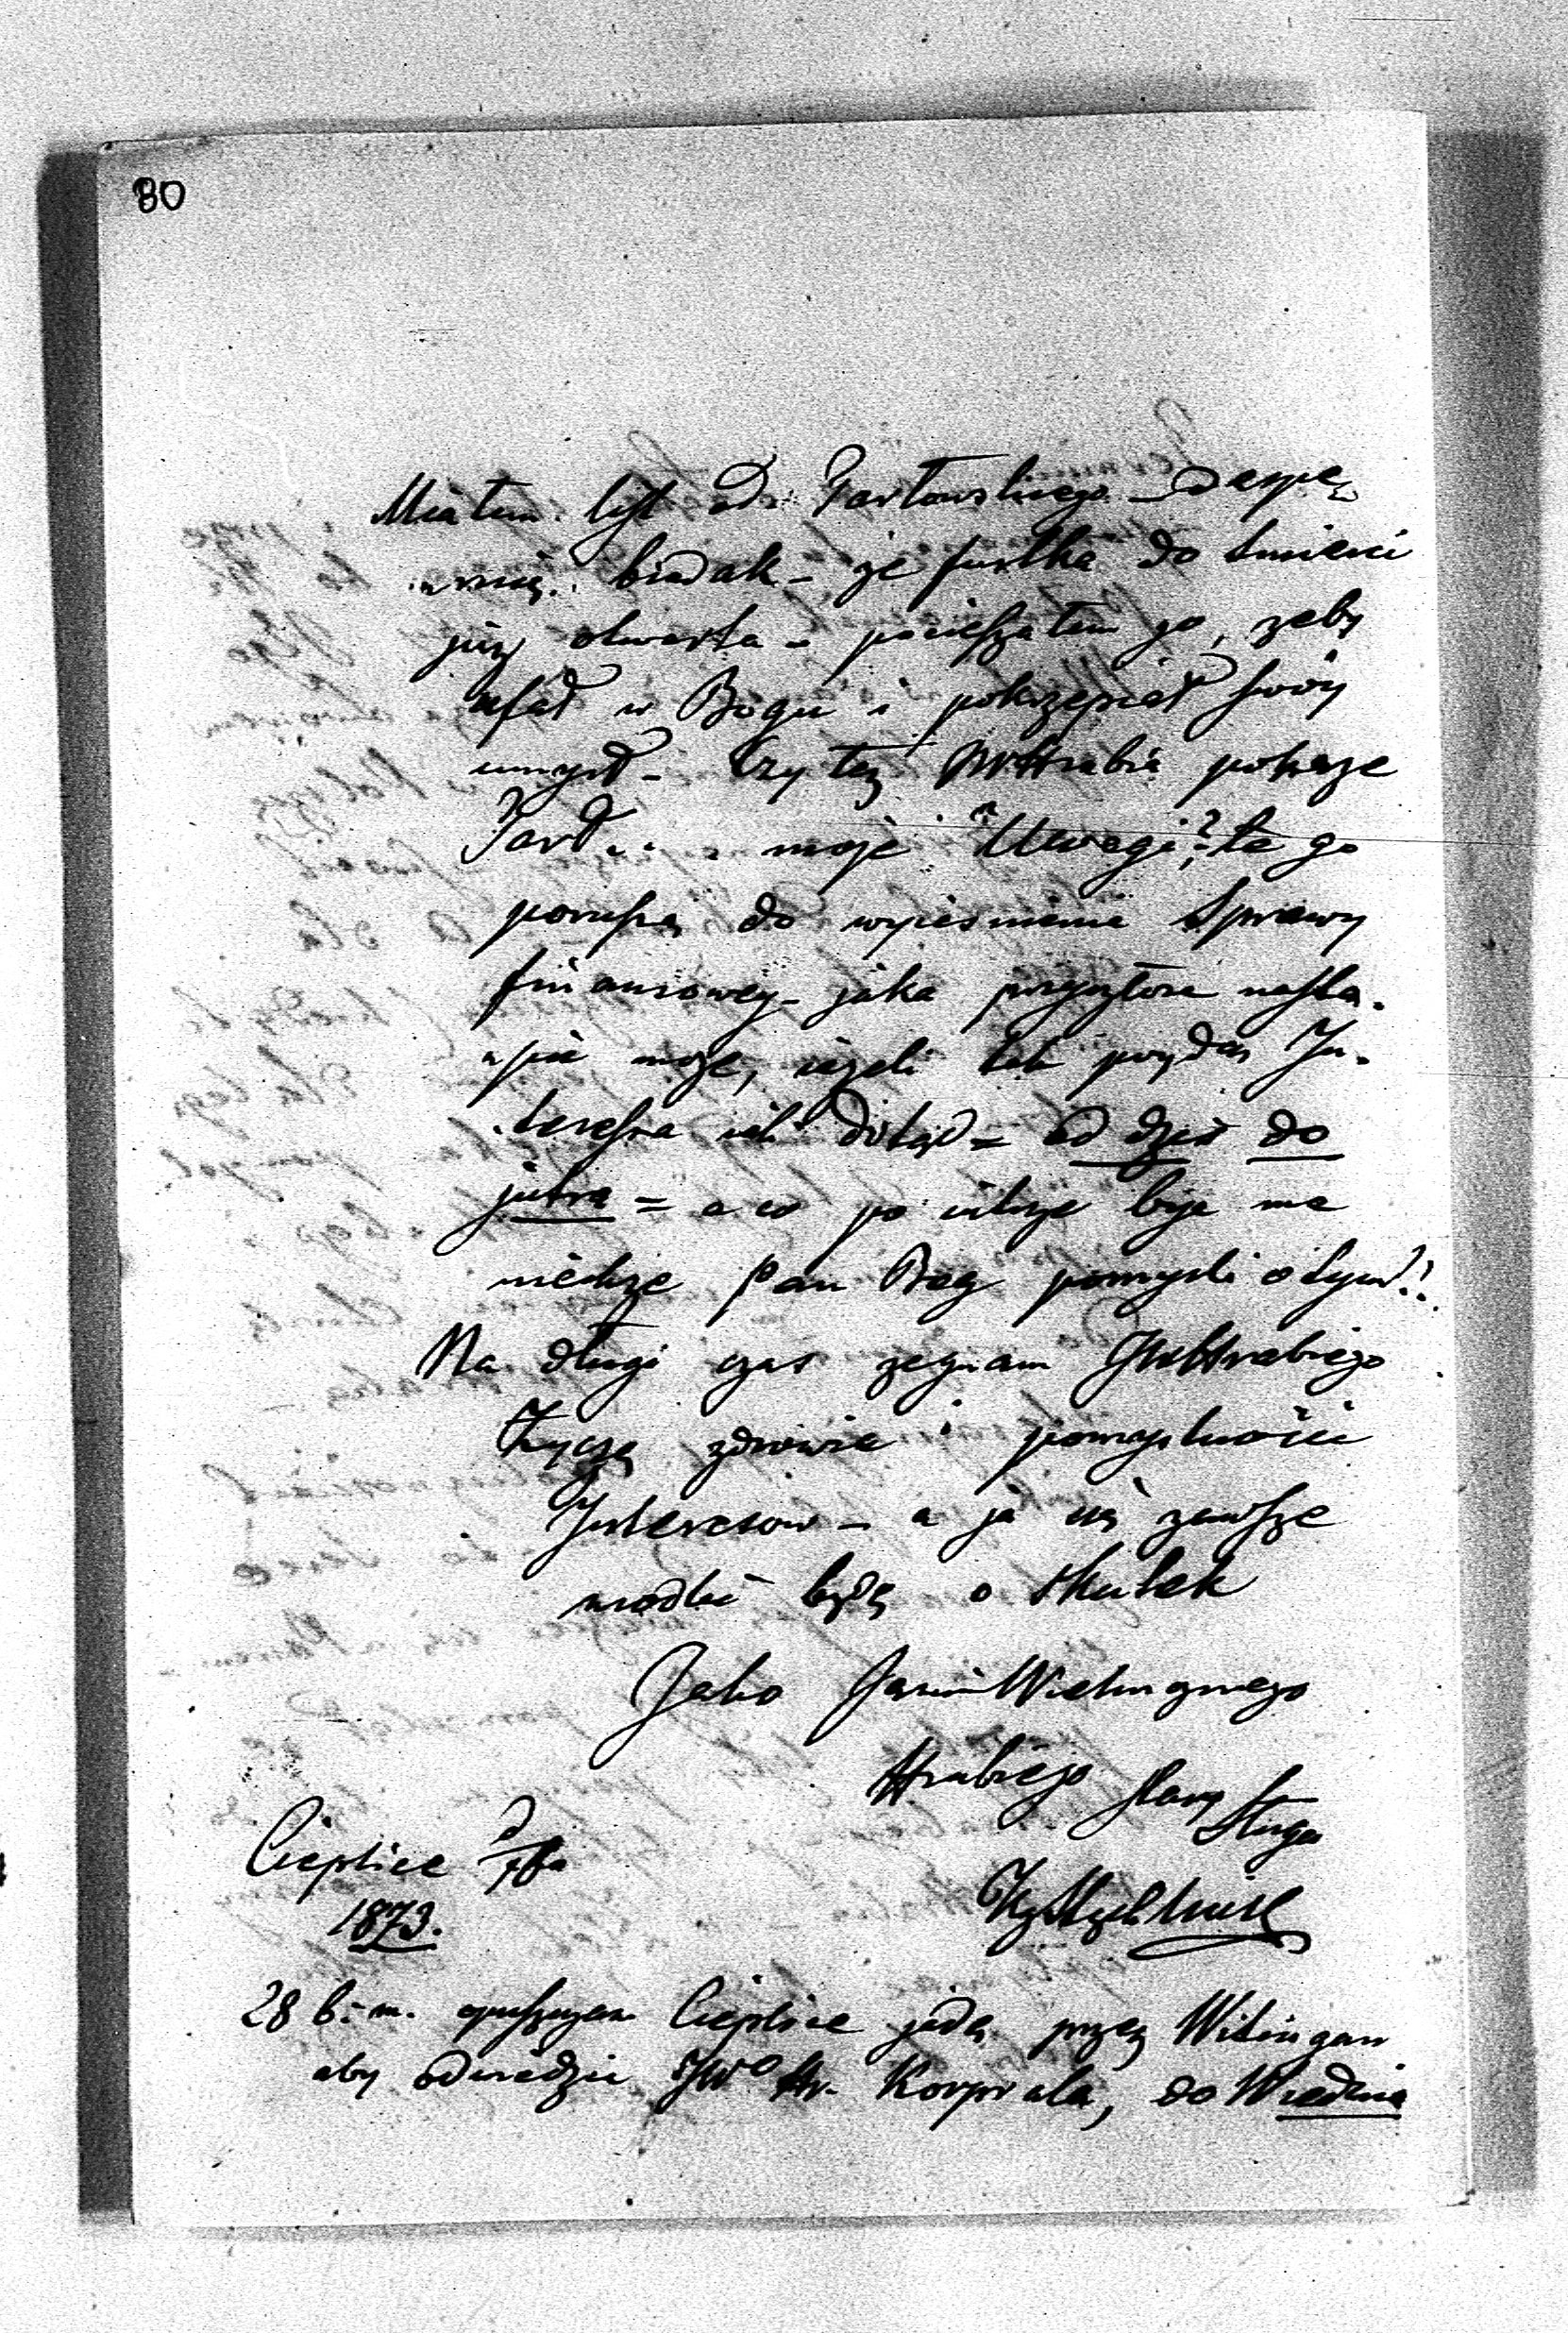 80
Miałem list od Pawłowskiego -
biedak - że furtka do śmierci
już otwarta - pocieszałem go, zeby
ufał w Bogu i pokrzepiał swóy
umysł - Czy też JWHrabia pokaże
moje "Uwagi"? te go
poruszą do wyjaśnienia Sprawy
finansowey - jaka przyszłość nasta-
-pić może, ieżeli tak póydą In-
-teressa ich dotąd = od dziś do
jutra = a co po iutrze być ma
niechże Pan Bog pomyśli o tym!!
Na długi czas zegnam JWHrabiego
Życzę zdrowia i pomyslności
Interesow - a ja się zawsze
modlić będę o skutek
Jako Jaśnie Wielmożnego
Hrabiego stary
Sługa
Cieplice
1873.
28 b. m. opuszczam Cieplice jadę przez Witingau
aby odwiedzić JWo Hr. Korprala, do Wiednia